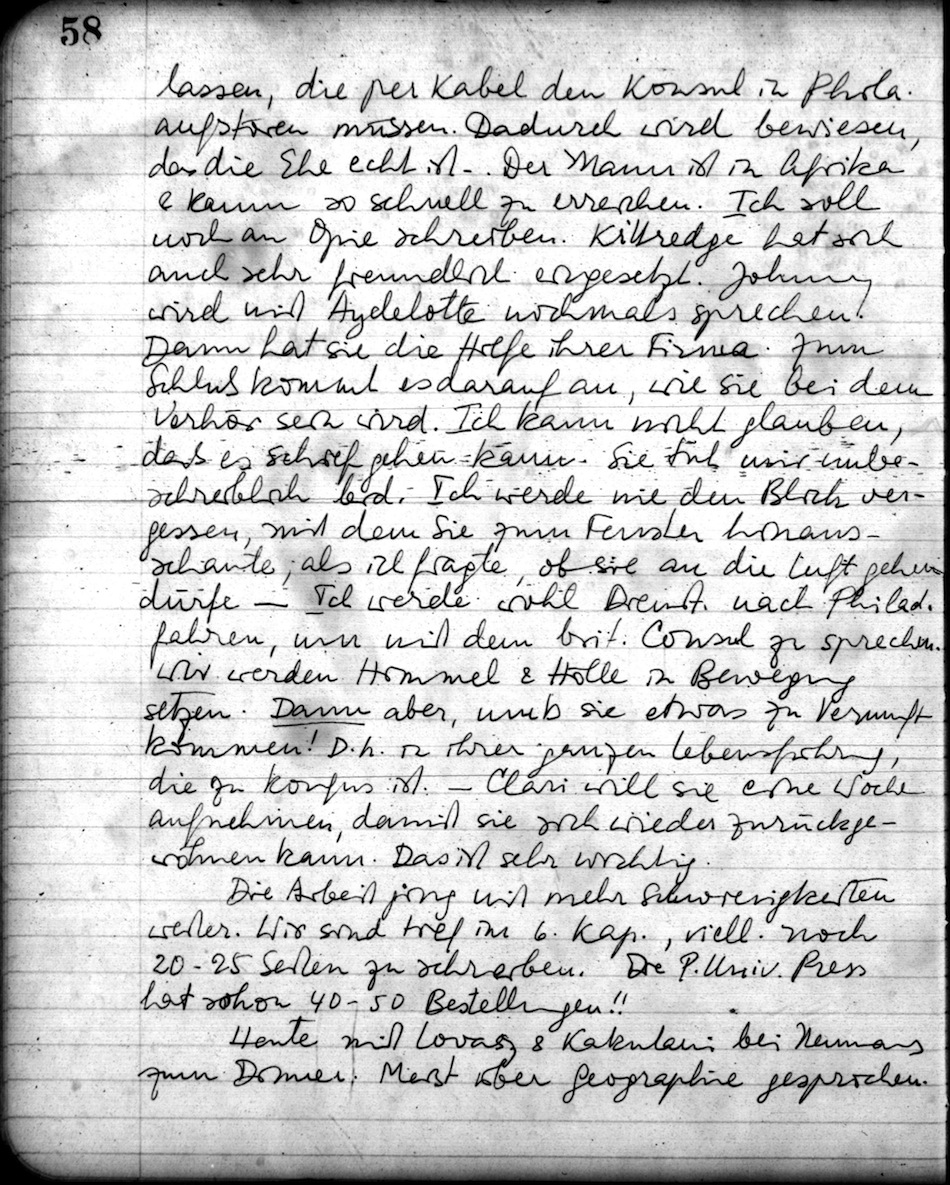 58
lassen, die per Kabel den Konsul in Phila.
aufstören müssen. Dadurch wird bewiesen,
das die Ehe echt ist. Der Mann ist in Afrika
& kaum so schnell zu erreichen. Ich soll
noch an Opie schreiben. Kittredge hat sich
auch sehr freundlich eingesetzt. Johnny
wird mit Aydelotte nochmals sprechen.
Dann hat sie die Hilfe ihrer Firma. Zum
Schluß kommt es darauf an, wie sie bei dem
Verhör sein wird. Ich kann nicht glauben,
daß es schief gehen kann. Sie tut mir unbe-
schreiblich leid. Ich werde nie den Blick ver-
gessen, mit dem Sie zum Fenster hinaus-
schaute, als ich fragte, ob sie an die Luft gehen
dürfe — Ich werde wohl Dienst. nach Philad.
fahren, um mit dem brit. Consul zu sprechen.
Wir werden Himmel & Hölle in Bewegung
setzen. Dann aber, muß sie etwas zu Vernunft
kommen! D.h. in ihrer ganzen Lebensführung,
die zu konfus ist. — Clari will sie eine Woche
aufnehmen, damit sie sich wieder zurückge-
wöhnen kann. Das ist sehr wichtig.
Die Arbeit ging mit mehr Schwierigkeiten
weiter. Wir sind tief im 6. Kap., viell. noch
20-25 Seiten zu schreiben. Die P. Univ. Press
hat schon 40-50 Bestellungen!!
Heute mit Lovasz & Kakulani bei Neumans
zum Dinner. Meist über Geographie gesprochen.